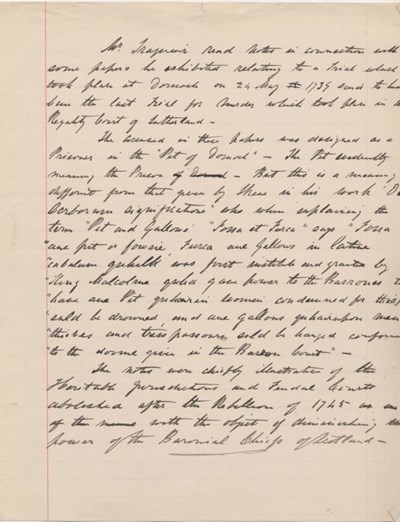 Mr. read Notes in connection with
some papers he exhibited relating to a Trial which
took place at Dornoch on 24 May 1739 said to have
been the last Trial for Murder which took place in a
Regality Court of Sutherland -
The accused in these papers was designed as a
Prisoner in the "Pit of Dornoch" - The Pit evidently
meaning the Prison of Dornoch - But this is a meaning
different from that given by Skene in his work "De
Verborum Significatione" who when explaining the
term "Pit and Gallows" "Fossa et Furca" says "Fossa
"ane pit or fousie Furca ane Gallows in latine
"cabalum quhilk was first institute and granted by
"King Malcolme quha gave power to the Barrones to
"have ane Pit quhairin women condemned for thift
"suld be drowned and ane gallows quhairupon men
"thieves and trespassours suld be hanged conforme
"to the doome given in the Barron Court" -
The notes were chiefly illustrative of the
Heritable Jurisdictions and Feudal Courts
abolished after the Rebellion of 1745 as one
of the means with the object of diminishing the
power of the Baronial Chiefs of Scotland -